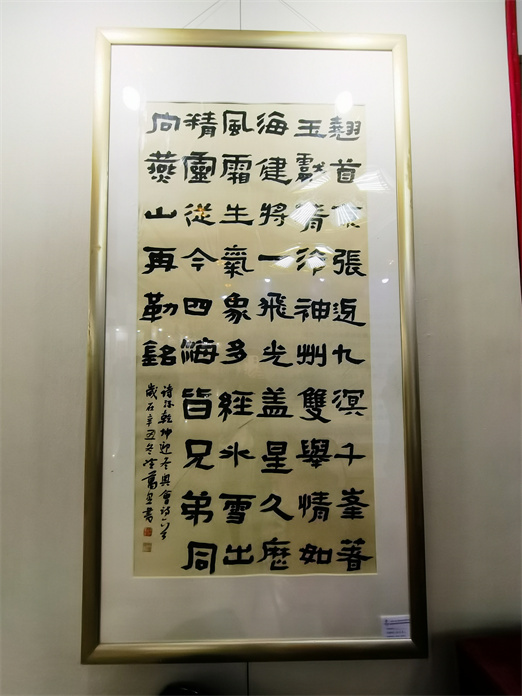 翹首張近九溟千峯著
玉獻精神州雙舉情如
海建將一飛光盖星久歷
風霜生氣象多經氷雪出
精靈從今四海皆兄弟同
向燕山再勒銘
乾坤迎冬奧會詩一首
歲在辛丑冬書